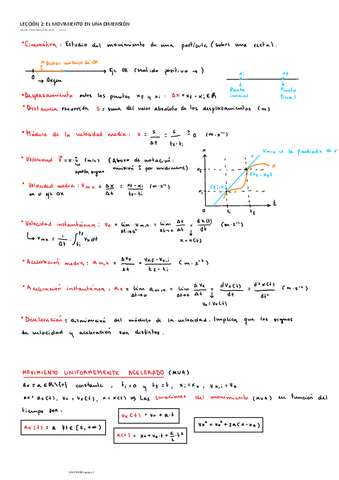 LECCIÓN 2: EL MOVIMIENTO EN UNA DIMENSIÓN
* Cinemática: Estudio del movimiento de una partícula (sobre una recta).
Vector unitario de OX
Eje OX (sentido positivo →)
O Origen
xi xf
Punto inicial
Punto final
* Desplazamiento entre los puntos xf y xi: Δx = xf - xi ∈ ℝ
* Distancia recorrida s = suma del valor absoluto de los desplazamientos (m)
* Módulo de la velocidad media: v = s/Δt = s/(tf - ti) ≥ 0 (m·s⁻¹)
* Velocidad (m/s) (Abuso de notación:
* Velocidad media: vm,x = Δx/Δt = (xf - xi)/(tf - ti) (m·s⁻¹)
en el eje OX
vm,x es la pendiente de
x
xf
(tf, xf)
xi
(ti, xi)
ti tf t
* Velocidad instantánea: vx = lim Δt→0 vm,x = lim Δt→0 Δx/Δt = dx(t)/dt (m·s⁻¹)
↳ vm,x = 1/Δt ∫ vx dt
x = x(t)
* Aceleración media: am,x = Δvx/Δt = (vx,f - vx,i)/(tf - ti) (m·s⁻²)
* Aceleración instantánea: ax = lim Δt→0 am,x = lim Δt→0 Δvx/Δt = dvx(t)/dt = d²x(t)/dt² (m·s⁻²)
vx = vx(t)
* Deceleración = disminución del módulo de la velocidad. Implica que los signos
de velocidad y aceleración son distintos.
MOVIMIENTO UNIFORMEMENTE ACELERADO (MUA)
ax = a ∈ ℝ\{0} constante, ti = 0 y tf = t, xi = x₀, vx,i = v₀
ax = ax(t), vx = vx(t), x = x(t) ⇒ Las ecuaciones del movimiento (MUA) en función del
tiempo son:
ax(t) = a ∀t ∈ [0, +∞)
vx(t) = v₀ + a·t
x(t) = x₀ + v₀·t + a·t²/2
vx² = v₀² + 2a(x - x₀)